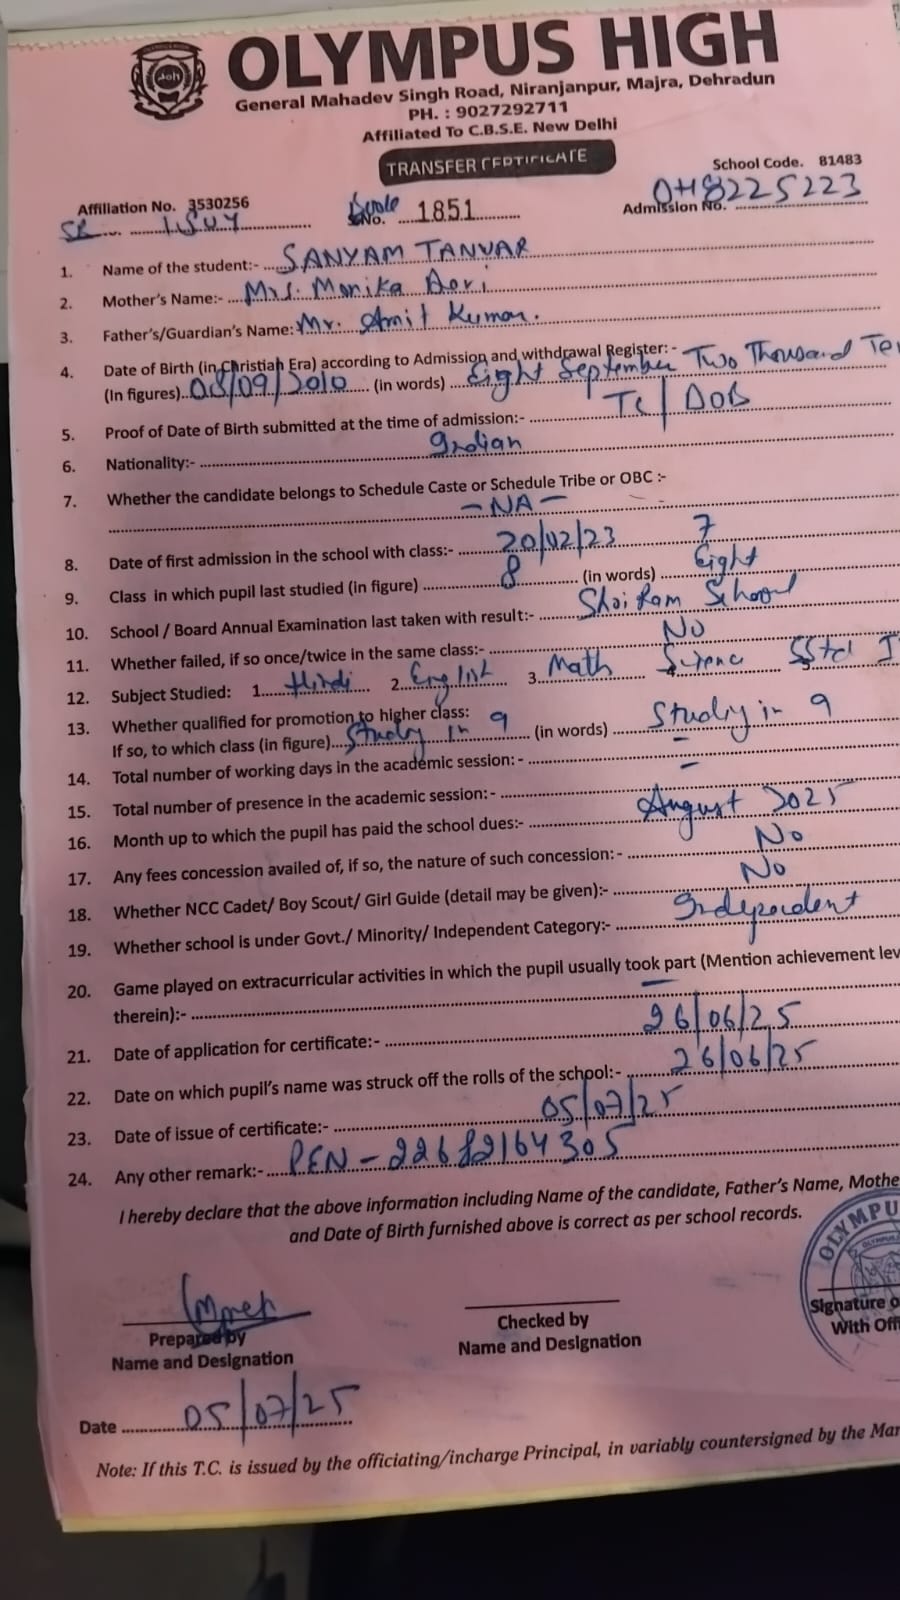 OLYMPUS HIGH
General Mahadev Singh Road, Niranjanpur, Majra, Dehradun
PH. : 9027292711
Affiliated To C.B.S.E. New Delhi
TRANSFER CERTIFICATE
School Code. 81483
Affiliation No. 3530256
No. 1851
Admission No. OH8225223
1. Name of the student:- SANYAM TANVAR
2. Mother's Name:- Mrs. Monika Devi
3. Father's/Guardian's Name: Mr. Amit Kumar.
4. Date of Birth (in Christian Era) according to Admission and withdrawal Register: -
(In figures) 08/09/2010 (in words) Eight September Two Thousand Te
5. Proof of Date of Birth submitted at the time of admission:- TC/DOB
6. Nationality:- Indian
7. Whether the candidate belongs to Schedule Caste or Schedule Tribe or OBC :-
-NA-
8. Date of first admission in the school with class:- 20/02/23 7
9. Class in which pupil last studied (in figure) 8 (in words) Eight
10. School / Board Annual Examination last taken with result:- Shri Ram School
11. Whether failed, if so once/twice in the same class:- No
12. Subject Studied: 1. Hindi 2. English 3. Math 4. Science 5. SStd I
13. Whether qualified for promotion to higher class:
If so, to which class (in figure) Study in 9 (in words) Study in 9
14. Total number of working days in the academic session: - -
15. Total number of presence in the academic session:- -
16. Month up to which the pupil has paid the school dues:- August 2025
17. Any fees concession availed of, if so, the nature of such concession: - No
18. Whether NCC Cadet/ Boy Scout/ Girl Guide (detail may be given):- No
19. Whether school is under Govt./ Minority/ Independent Category:- Independent
20. Game played on extracurricular activities in which the pupil usually took part (Mention achievement lev
therein):- -
21. Date of application for certificate:- 26/06/25
22. Date on which pupil's name was struck off the rolls of the school:- 26/06/25
23. Date of issue of certificate:- 05/07/25
24. Any other remark:- PEN-22682164305
I hereby declare that the above information including Name of the candidate, Father's Name, Mothe
and Date of Birth furnished above is correct as per school records.
OLYMPU
Prepared by
Name and Designation
Checked by
Name and Designation
Signature o
With Offi
Date 05/07/25
Note: If this T.C. is issued by the officiating/incharge Principal, in variably countersigned by the Man